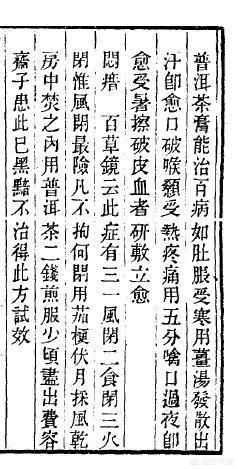 普洱茶膏能治百病如肚脹受寒用薑湯發散出
汁卽愈口破喉顙受熱疼痛用五分噙口過夜卽
愈受暑擦破皮血者研敷立愈
悶瘄　百草鏡云此症有三一風閉二食閉三火
閉惟風閉最險凡不拘何閉用茄梗伏月採風乾
房中焚之內用普洱茶二錢煎服少頃盡出費容
齋子患此已黑黯不治得此方試效